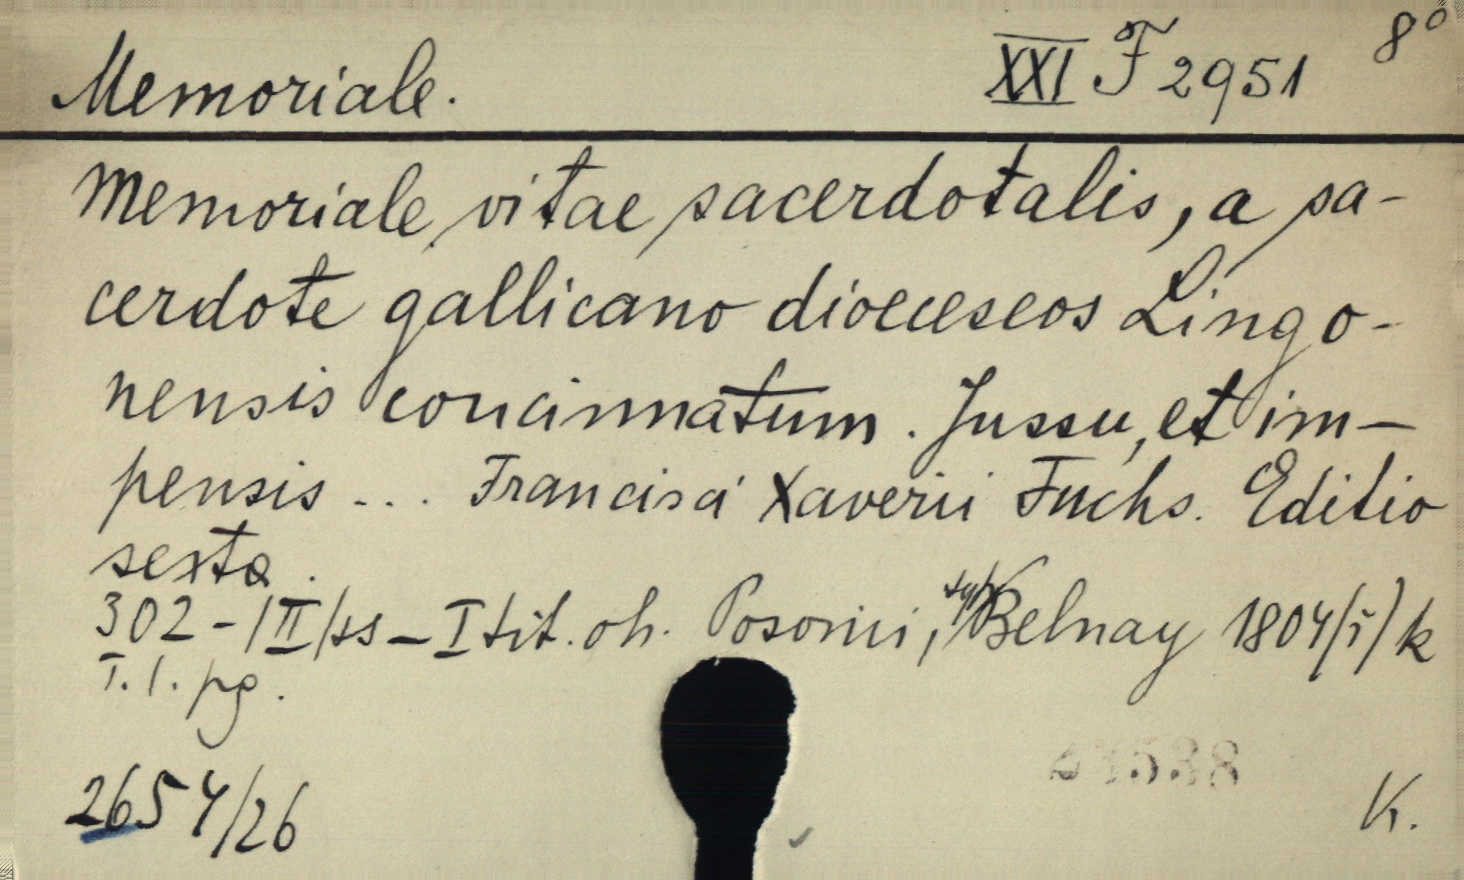 Memoriale. XXI F 2951 8°
Memoriale vitae sacerdotalis, a sa-
cerdote gallicano dioeceseos Lingo-
nensis concinnatum. Jussu, et im-
pensis ... Francisci Xaverii Fuchs. Editio
sexta.
302 - /II/ss - I tit. oh. Posonii, typ. Belnay 1804 k
T. l. pg.
2654/26
K.